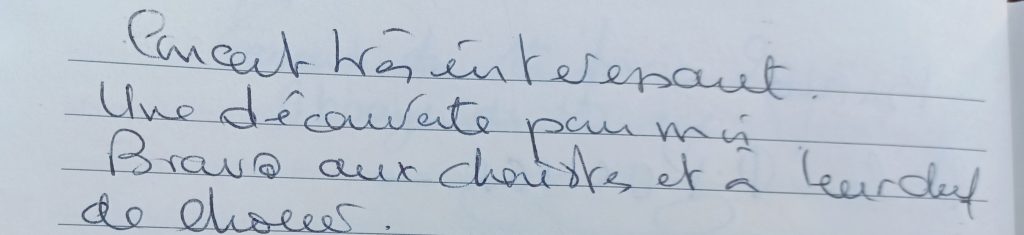 Concert très intéressant.
Une découverte pour moi
Bravo aux choristes et à leur chef
de choeur.